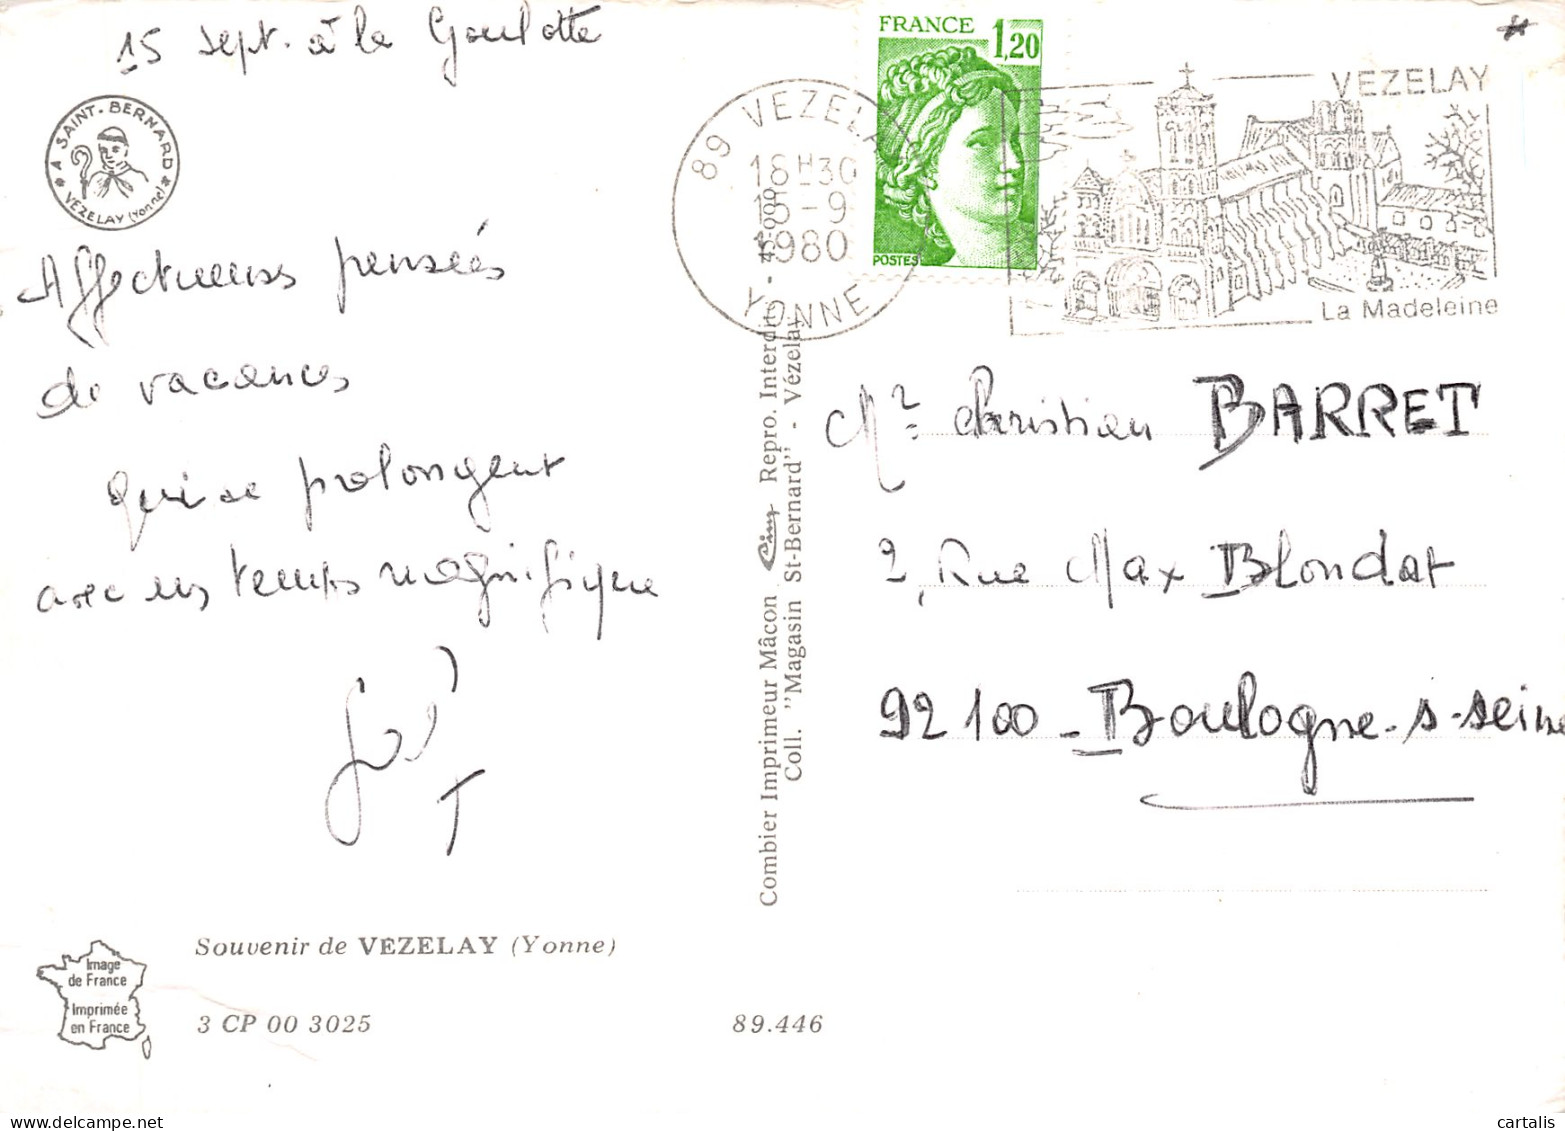 15 Sept. à la Goulotte
A SAINT-BERNARD
VEZELAY (Yonne)
Affectueuses pensées
de vacances
qui se prolongent
avec un temps magnifique
Souvenir de VEZELAY (Yonne)
3 CP 00 3025
89.446
Image
de France
Imprimée
en France
Combier Imprimeur Mâcon Cim Repro. Interdit
Coll. "Magasin St-Bernard" - Vézelay
FRANCE
1,20
POSTES
89 VEZELAY
18H30
1980
YONNE
VEZELAY
La Madeleine
Mr Christian BARRET
2, Rue Max Blondat
92100 - Boulogne-s-Seine
cartalis